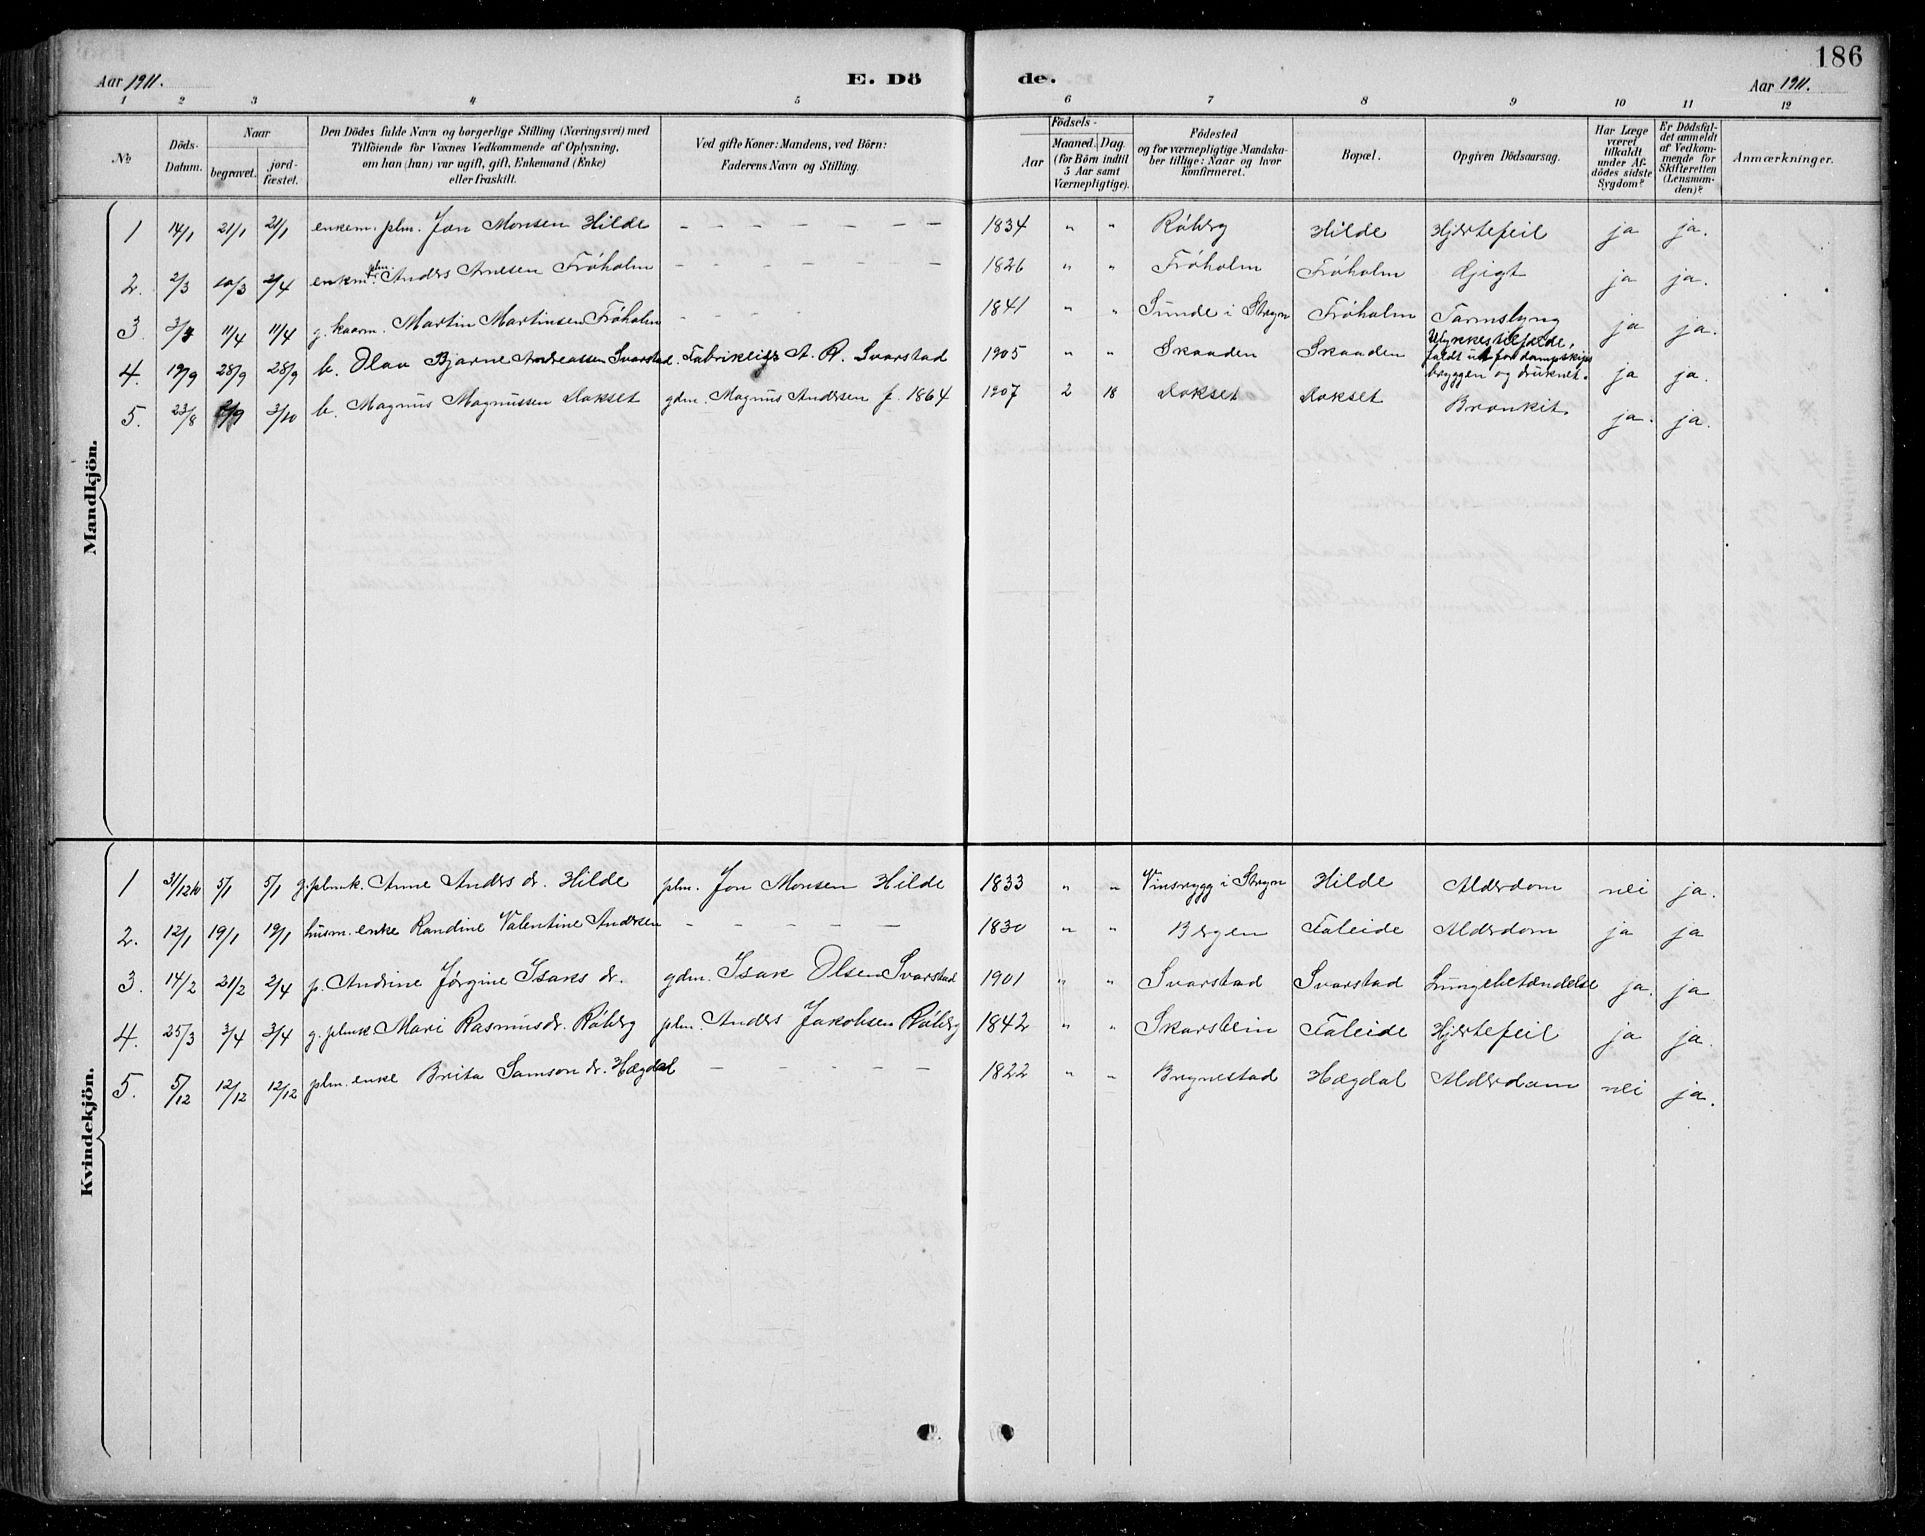 186
Aar 1911. E. Dö de. Aar 1911.
1 2 3 4 5 6 7 8 9 10 11 12
No
Döds-Datum.
Naar
begravet.
jord-fæstet.
Den Dödes fulde Navn og borgerlige Stilling (Næringsvei) med
Tilföiende for Voxnes Vedkommende af Oplysning,
om han (hun) var ugift, gift, Enkemand (Enke)
eller fraskilt.
Ved gifte Koner: Mandens, ved Börn:
Faderens Navn og Stilling.
Födsels-
Aar
Maaned. Dag.
(for Börn indtil
5 Aar samt
Værnepligtige).
Födested
og for værnepligtige Mandska-
ber tillige: Naar og hvor
konfirmeret.
Bopæl.
Opgiven Dödsaarsag.
Har Læge
været
tilkaldt
under Af-
dödes sidste
Sygdom?
Er Dödsfal-
det anmeldt
af Vedkom-
mende for
Skifteretten
(Lensman-
den)?
Anmærkninger.
Mandkjön.
1 14/1 21/1 21/1 enkem. plm. Jon Monsen Hilde – – – – – – – 1834 " " Röberg Hilde Hjertefeil ja ja.
2. 2/3 10/3 2/4 enkm. plm. Anders Andersen Fröholm – – – – – – – 1826 " " Fröholm Fröholm Gigt ja ja.
3. 3/4 11/4 11/4 g. kaarm. Martin Martinsen Fröholm – – – – 1841 " " Sunde i Stryn Fröholm Tarmslyng ja ja.
4. 19/9 28/9 28/9 b. Olav Bjarne Andreassen Svarstad. Fabrikeier A. R. Svarstad 1905 " " Skaaden Skaaden Ulykkestilfælde,
faldt ut for dampskips
bryggen og druknet. ja ja.
5. 23/8 2/9 3/10 b. Magnus Magnussen Lokset gdm. Magnus Andersen f. 1864 1907 2 18 Lokset Lokset Bronkit. ja. ja.
Kvindekjön.
1 31/12 10 5/1 5/1 g. plmk. Anne Anders dr. Hilde plm. Jon Monsen Hilde 1833 " " Vinsrygg i Stryn Hilde Alderdom nei ja.
2. 12/1 19/1 19/1 husm. enke Randine Valentine Andersen – – – – – 1830 " " Bergen Faleide Alderdom ja ja
3. 14/2 21/2 2/4 p. Andrine Jørgine Isaks dr. gdm. Isak Olsen Svarstad 1901 " " Svarstad Svarstad Lungebetændelse ja. ja
4. 25/3 3/4 3/4 g. plmk. Mari Rasmusdr. Röberg plm. Anders Jakobsen Röberg 1842 " " Skarstein Faleide Hjertefeil ja ja.
5. 5/12 12/12 12/12 plm. enke Brita Samson dr. Hægdal – – – – – 1822 " " Brynestad Hægdal Alderdom nei ja.